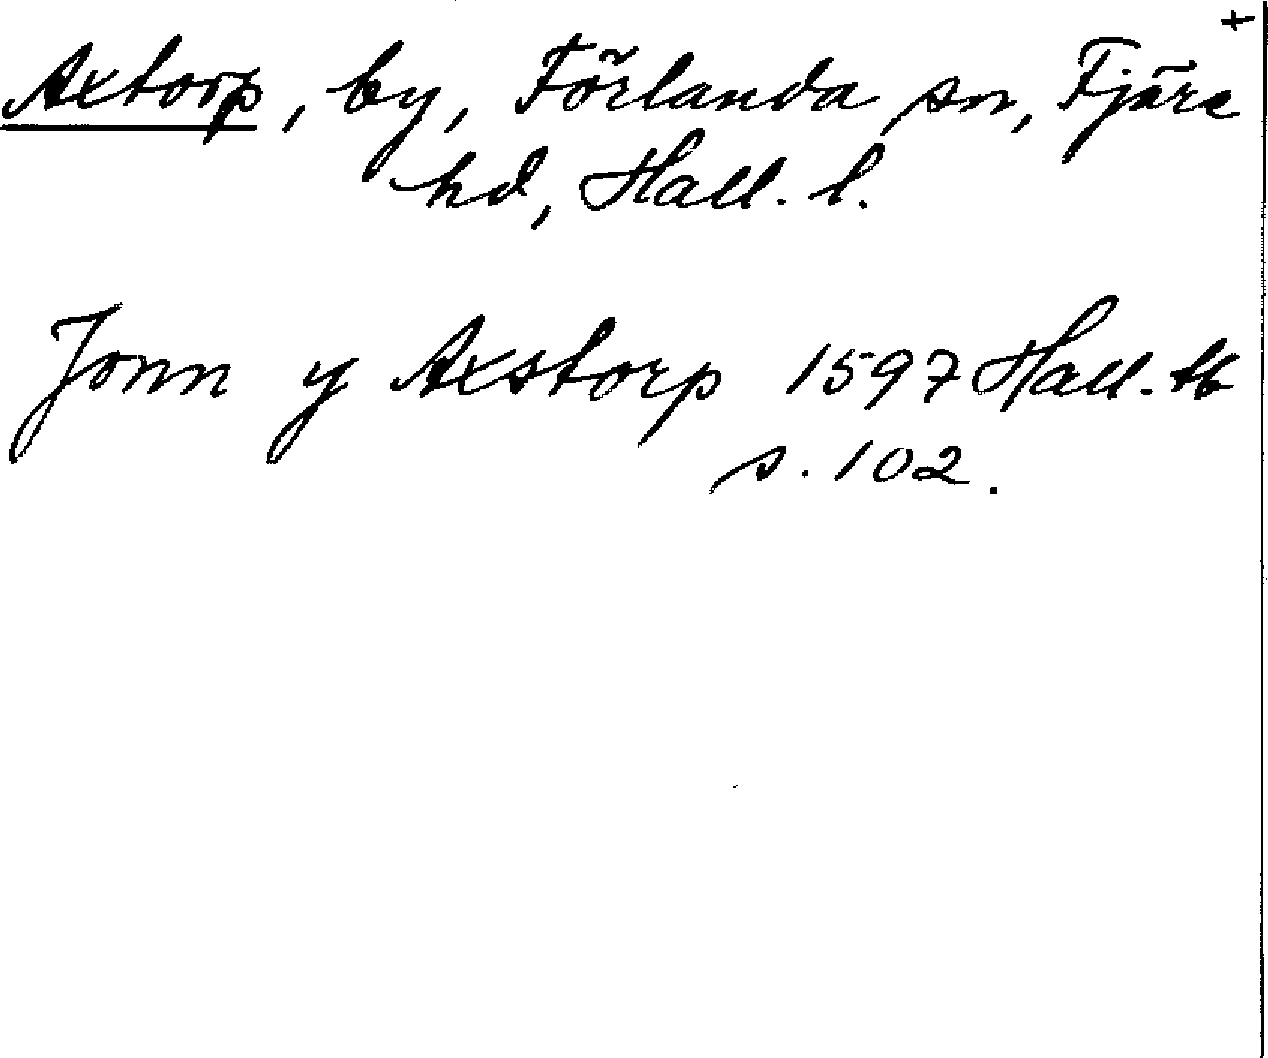 +
Axtorp, by, Förlanda sn, Fjäre
hd, Hall. l.
Jonn y Axstorp 1597 Hall. tb
s. 102.